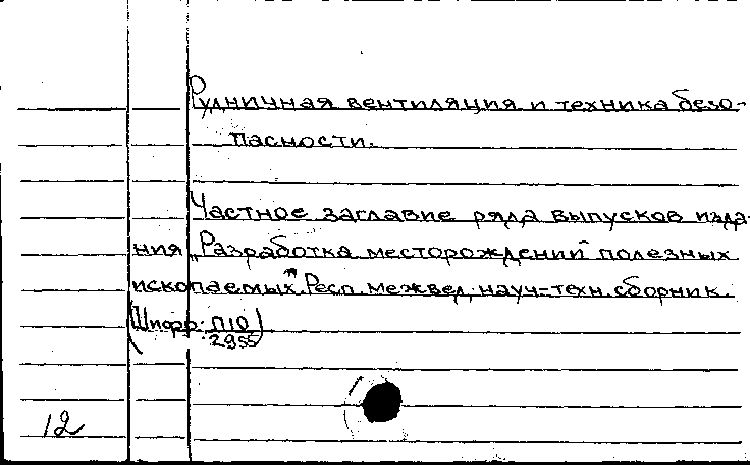 Рудничная вентиляция и техника безо-
пасности.
Частное заглавие ряда выпусков изда-
ния „Разработка месторождений полезных
ископаемых" Респ. межвед. науч-техн. сборник.
(Шифр: П10
2955)
12